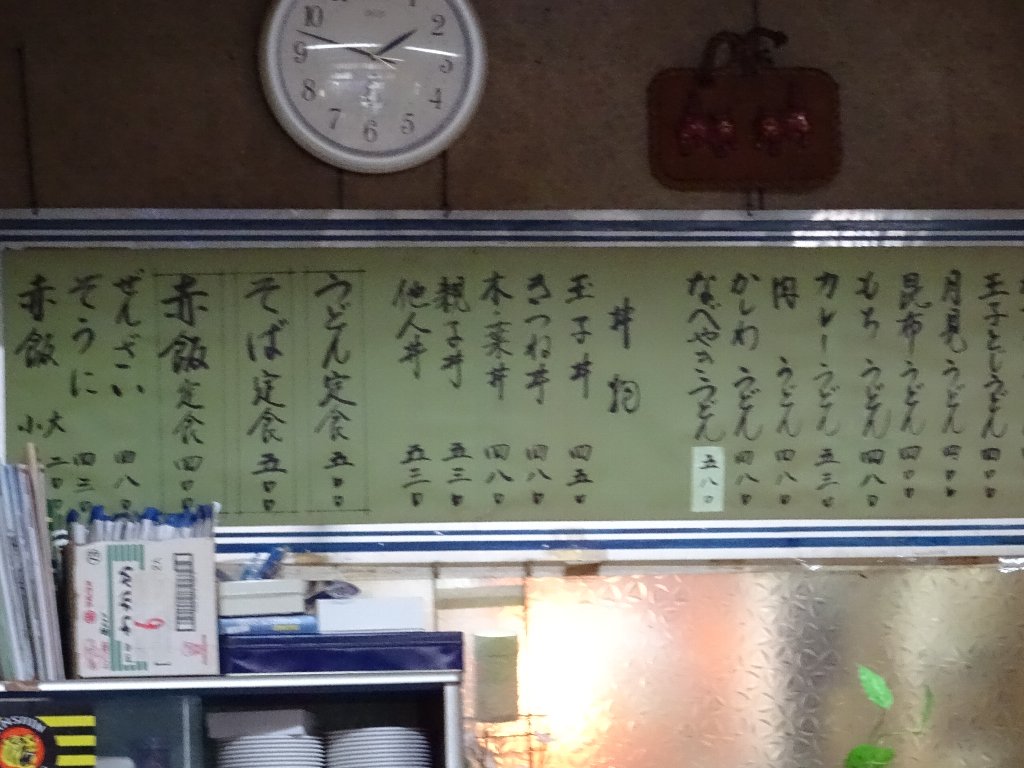 10
2
3
4
5
6
7
8
9
玉子とじうどん 四〇
月見 うどん 四〇〇
昆布 うどん 四〇〇
もち うどん 四八〇
カレーうどん 五三〇
肉 うどん 四八〇
かしわ うどん 四八〇
なべやきうどん 五八〇
丼物
玉子丼 四五〇
きつね丼 四八〇
木の葉丼 四八〇
親子丼 五三〇
他人丼 五三〇
うどん定食 五〇〇
そば定食 五〇〇
赤飯定食 四〇〇
ぜんざい 四八〇
ぞうに 四三〇
赤飯 大
小 二〇〇